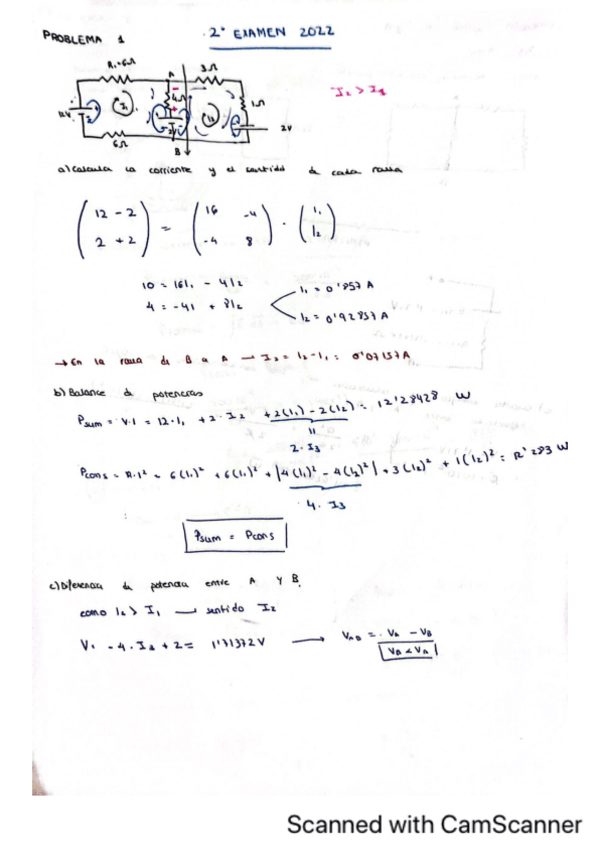 PROBLEMA 1
2º EXAMEN 2022
R₁=6Ω
3Ω
A
4Ω
1Ω
I₁
I₂
12V
2V
2V
6Ω
B
I₂ > I₁
a) Calcula la corriente y el sentido de cada rama
(12 - 2
2 + 2) = (16 -4
-4 8) · (I₁
I₂)
10 = 16I₁ - 4I₂
4 = -4I + 8I₂
I₁ = 0'857 A
I₂ = 0'92857 A
→ En la rama de B a A → I₃ = I₂-I₁ = 0'07157A
b) Balance de potencias
Psum = V·I = 12·I₁ + 2·I₂ + 2(I₁) - 2(I₂) = 12'28428 W
2·I₃
Pcons = R·I² = 6(I₁)² + 6(I₁)² + |4(I₁)² - 4(I₂)²| + 3(I₂)² + 1(I₂)² = 12'283 W
4·I₃
Psum = Pcons
c) Diferencia de potencia entre A y B
como I₂ > I₁ → sentido I₂
V: -4·I₃ + 2 = 1'71372V → VAB = VA - VB
VB < VA
Scanned with CamScanner